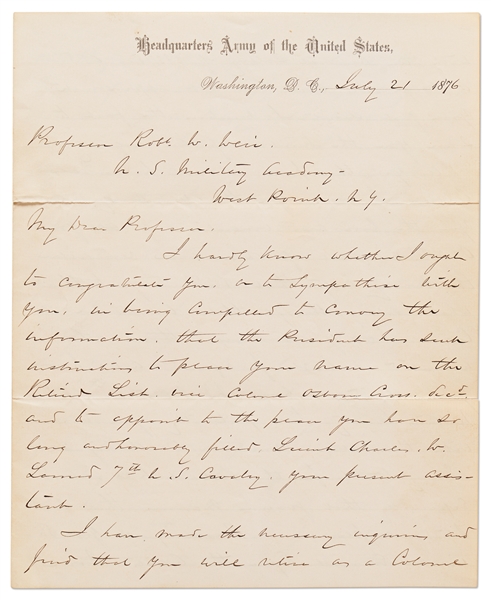 Headquarters Army of the United States,
Washington, D. C., July 21 1876
Professor Robt. W. Weir.
U. S. Military Academy-
West Point. N.Y.
My Dear Professor.
I hardly know whether I ought
to congratulate you, or to sympathise with
you, in being compelled to convey the
information, that the President has such
instructions to place your name on the
Retired List. vice Colonel Osborn Cross. decd.
and to appoint to the place you have so
long and honorably filled, Lieut Charles. W.
Larned 7th U. S. Cavalry. your present assis-
tant.
I have made the necessary inquiries and
find that you will retire as a Colonel